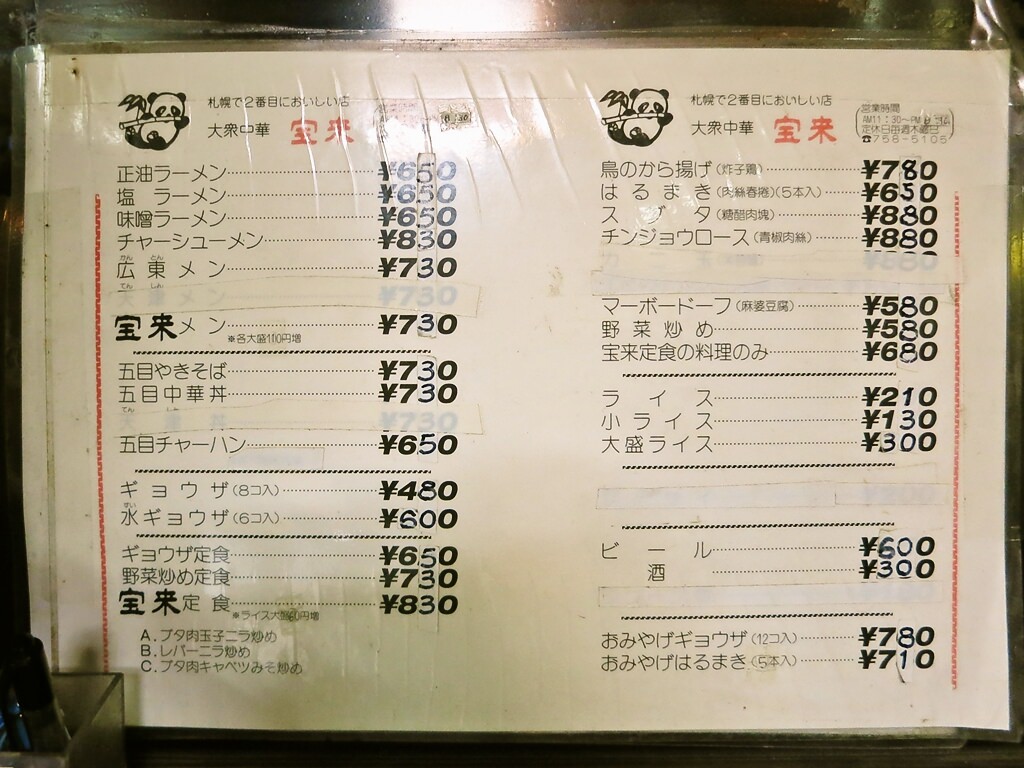 札幌で2番目においしい店
大衆中華 宝来
正油ラーメン ¥650
塩 ラーメン ¥650
味噌ラーメン ¥650
チャーシューメン ¥830
広東メン ¥730
かん とん
てん しん
天津メン ¥730
宝来メン ¥730
※各大盛110円増
五目やきそば ¥730
五目中華丼 ¥730
てん しん
天津丼 ¥730
五目チャーハン ¥650
ギョウザ(8コ入) ¥480
すい
水ギョウザ(6コ入) ¥600
ギョウザ定食 ¥650
野菜炒め定食 ¥730
宝来定食 ¥830
※ライス大盛60円増
A.ブタ肉玉子ニラ炒め
B.レバーニラ炒め
C.ブタ肉キャベツみそ炒め
札幌で2番目においしい店
大衆中華 宝来
営業時間
AM11:30~PM8:30
定休日毎週木曜日
☎758-5105
鳥のから揚げ(炸子鶏) ¥780
はるまき(肉絲春捲)(5本入) ¥650
スブタ(糖醋肉塊) ¥880
チンジョウロース(青椒肉絲) ¥880
マーボードーフ(麻婆豆腐) ¥580
野菜炒め ¥580
宝来定食の料理のみ ¥680
ライス ¥210
小ライス ¥130
大盛ライス ¥300
ビール ¥600
酒 ¥300
おみやげギョウザ(12コ入) ¥780
おみやげはるまき(5本入) ¥710